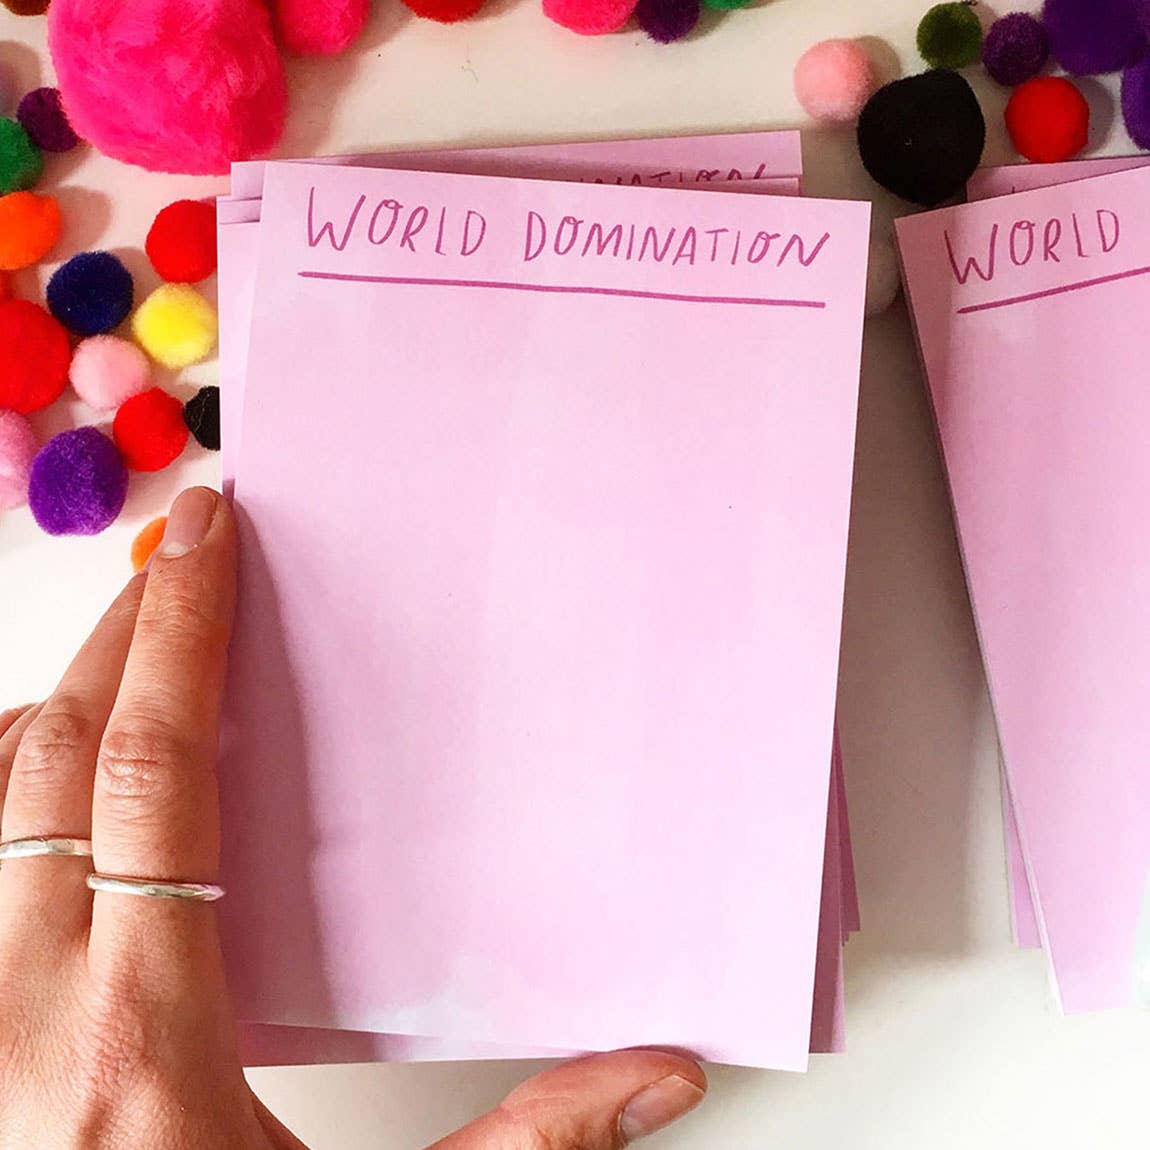 WORLD DOMINATION
WORLD